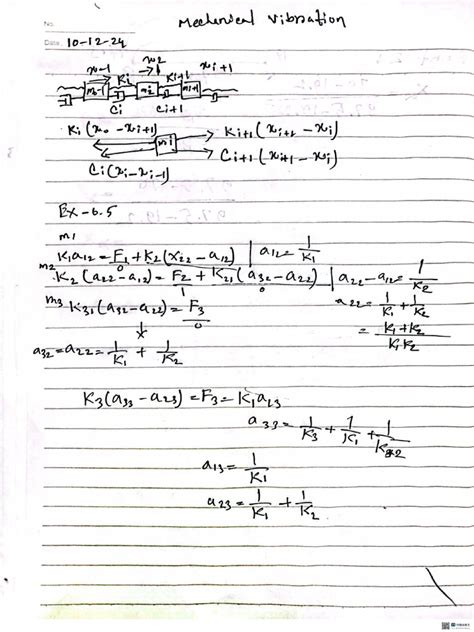 Mechanical Vibration
No
Date 10-12-24
x_i-1 K_i x_2 K_i+1 x_i+1
m_i-1 m_i m_i+1
C_i C_i+1
K_i(x_0 - x_i+1) m_i K_i+1(x_i+2 - x_i)
C_i(x_i - x_i-1) C_i+1(x_i+1 - x_i)
Ex-6.5
m1
K1a12 = F1 + K2(x22 - a12) | a12 = 1/K1
0
m2 K2(a22 - a12) = F2 + K21(a32 - a22) | a22 - a12 = 1/K2
1 0
m3 K31(a32 - a22) = F3 a22 = 1/K1 + 1/K2
0
↓ = K1+K2/K1K2
a32 = a22 = 1/K1 + 1/K2
K3(a33 - a23) = F3 = K1a13
a33 = 1/K3 + 1/K1 + 1/K2
a13 = 1/K1
a23 = 1/K1 + 1/K2